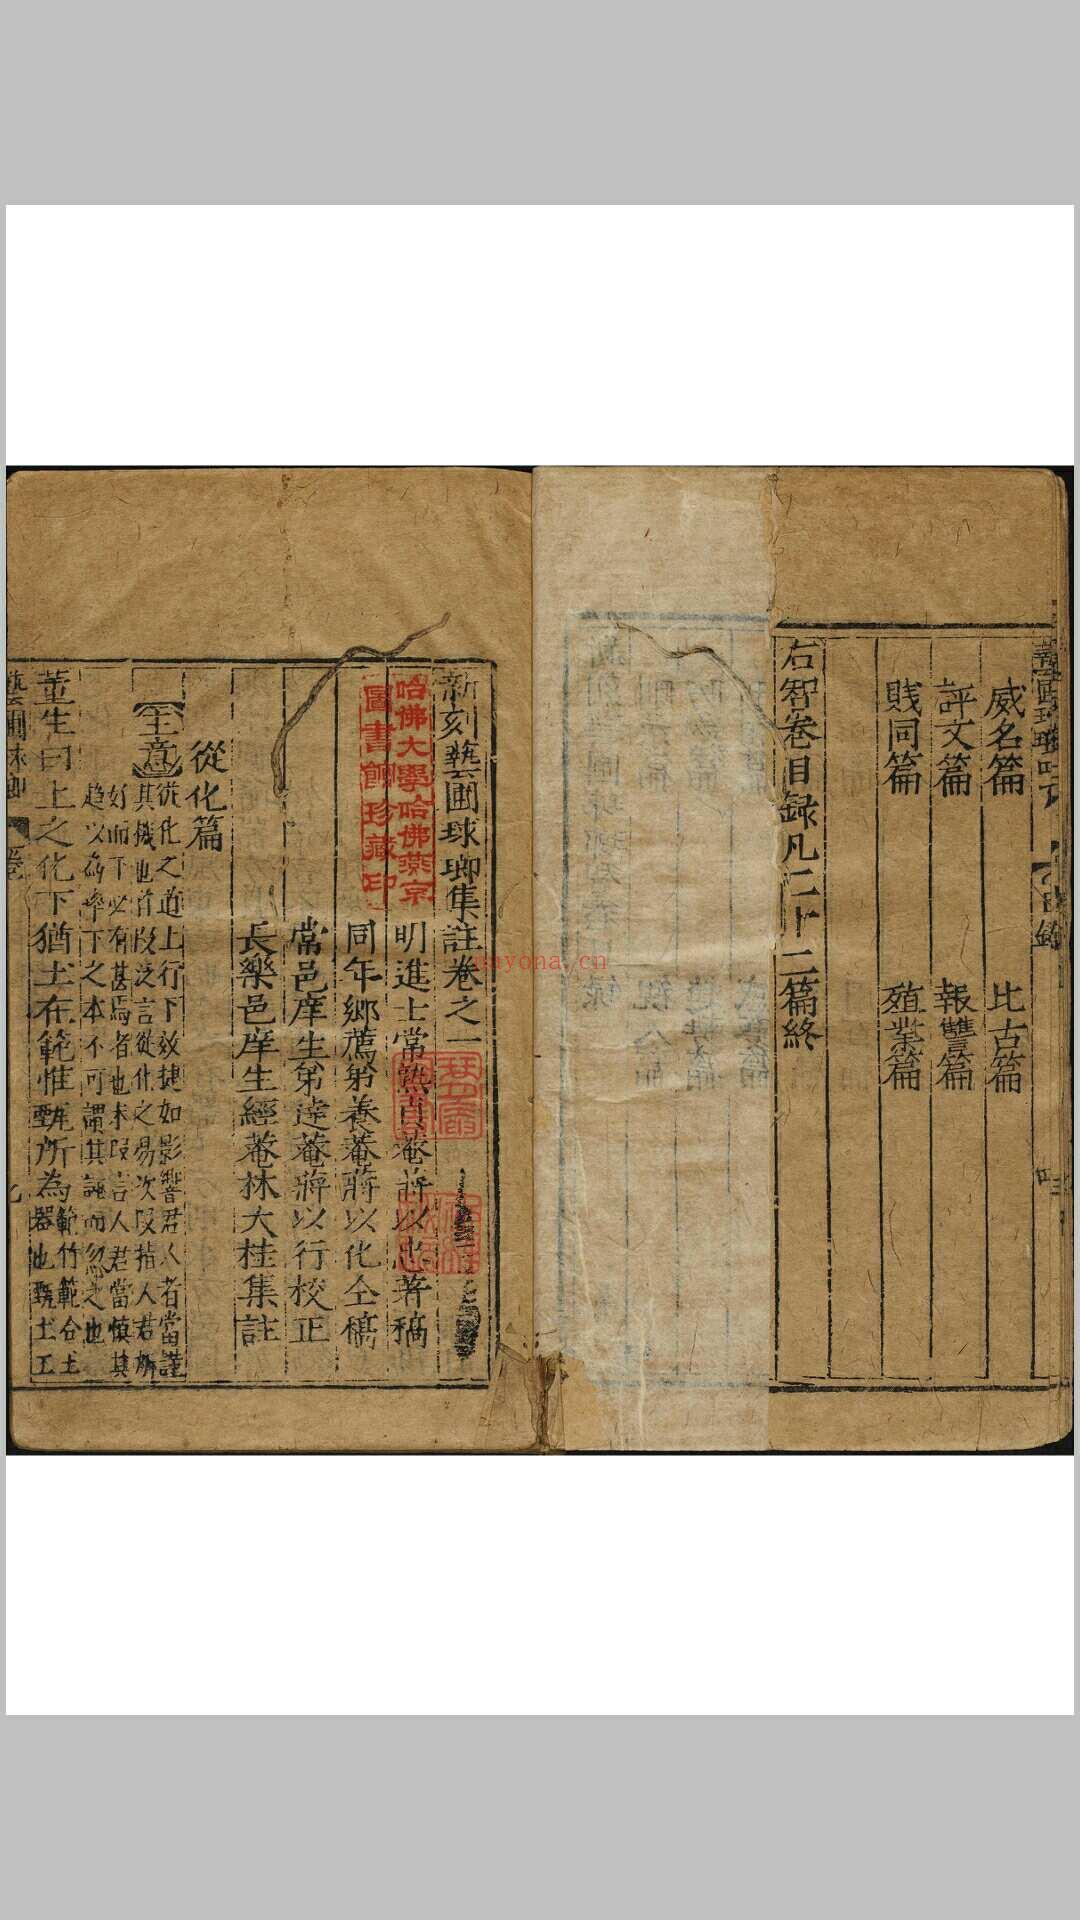 威名篇 比古篇
評文篇 報讐篇
賎同篇 殖業篇
右智卷目録凡二十二篇終
新刻藝圃球瑯集註卷之一
哈佛大學哈佛燕京
圖書館珍藏印
明進士常熟貞菴蔣以忠著稿
同年鄉薦弟養菴蔣以化仝稿
常邑庠生弟逵菴蔣以行校正
長樂邑庠生經菴林大桂集註
從化篇
【主意】從化之道上行下效捷如影響君人者當謹
其機也首段泛言從化之易次段指人君所
好而下必有甚焉者也末段言人君當慎其
趋以為率下之本不可謂其誣而忽之也
董生曰上之化下猶土在範惟甄所為
範竹範合土
器也甄土工
nayona.cn